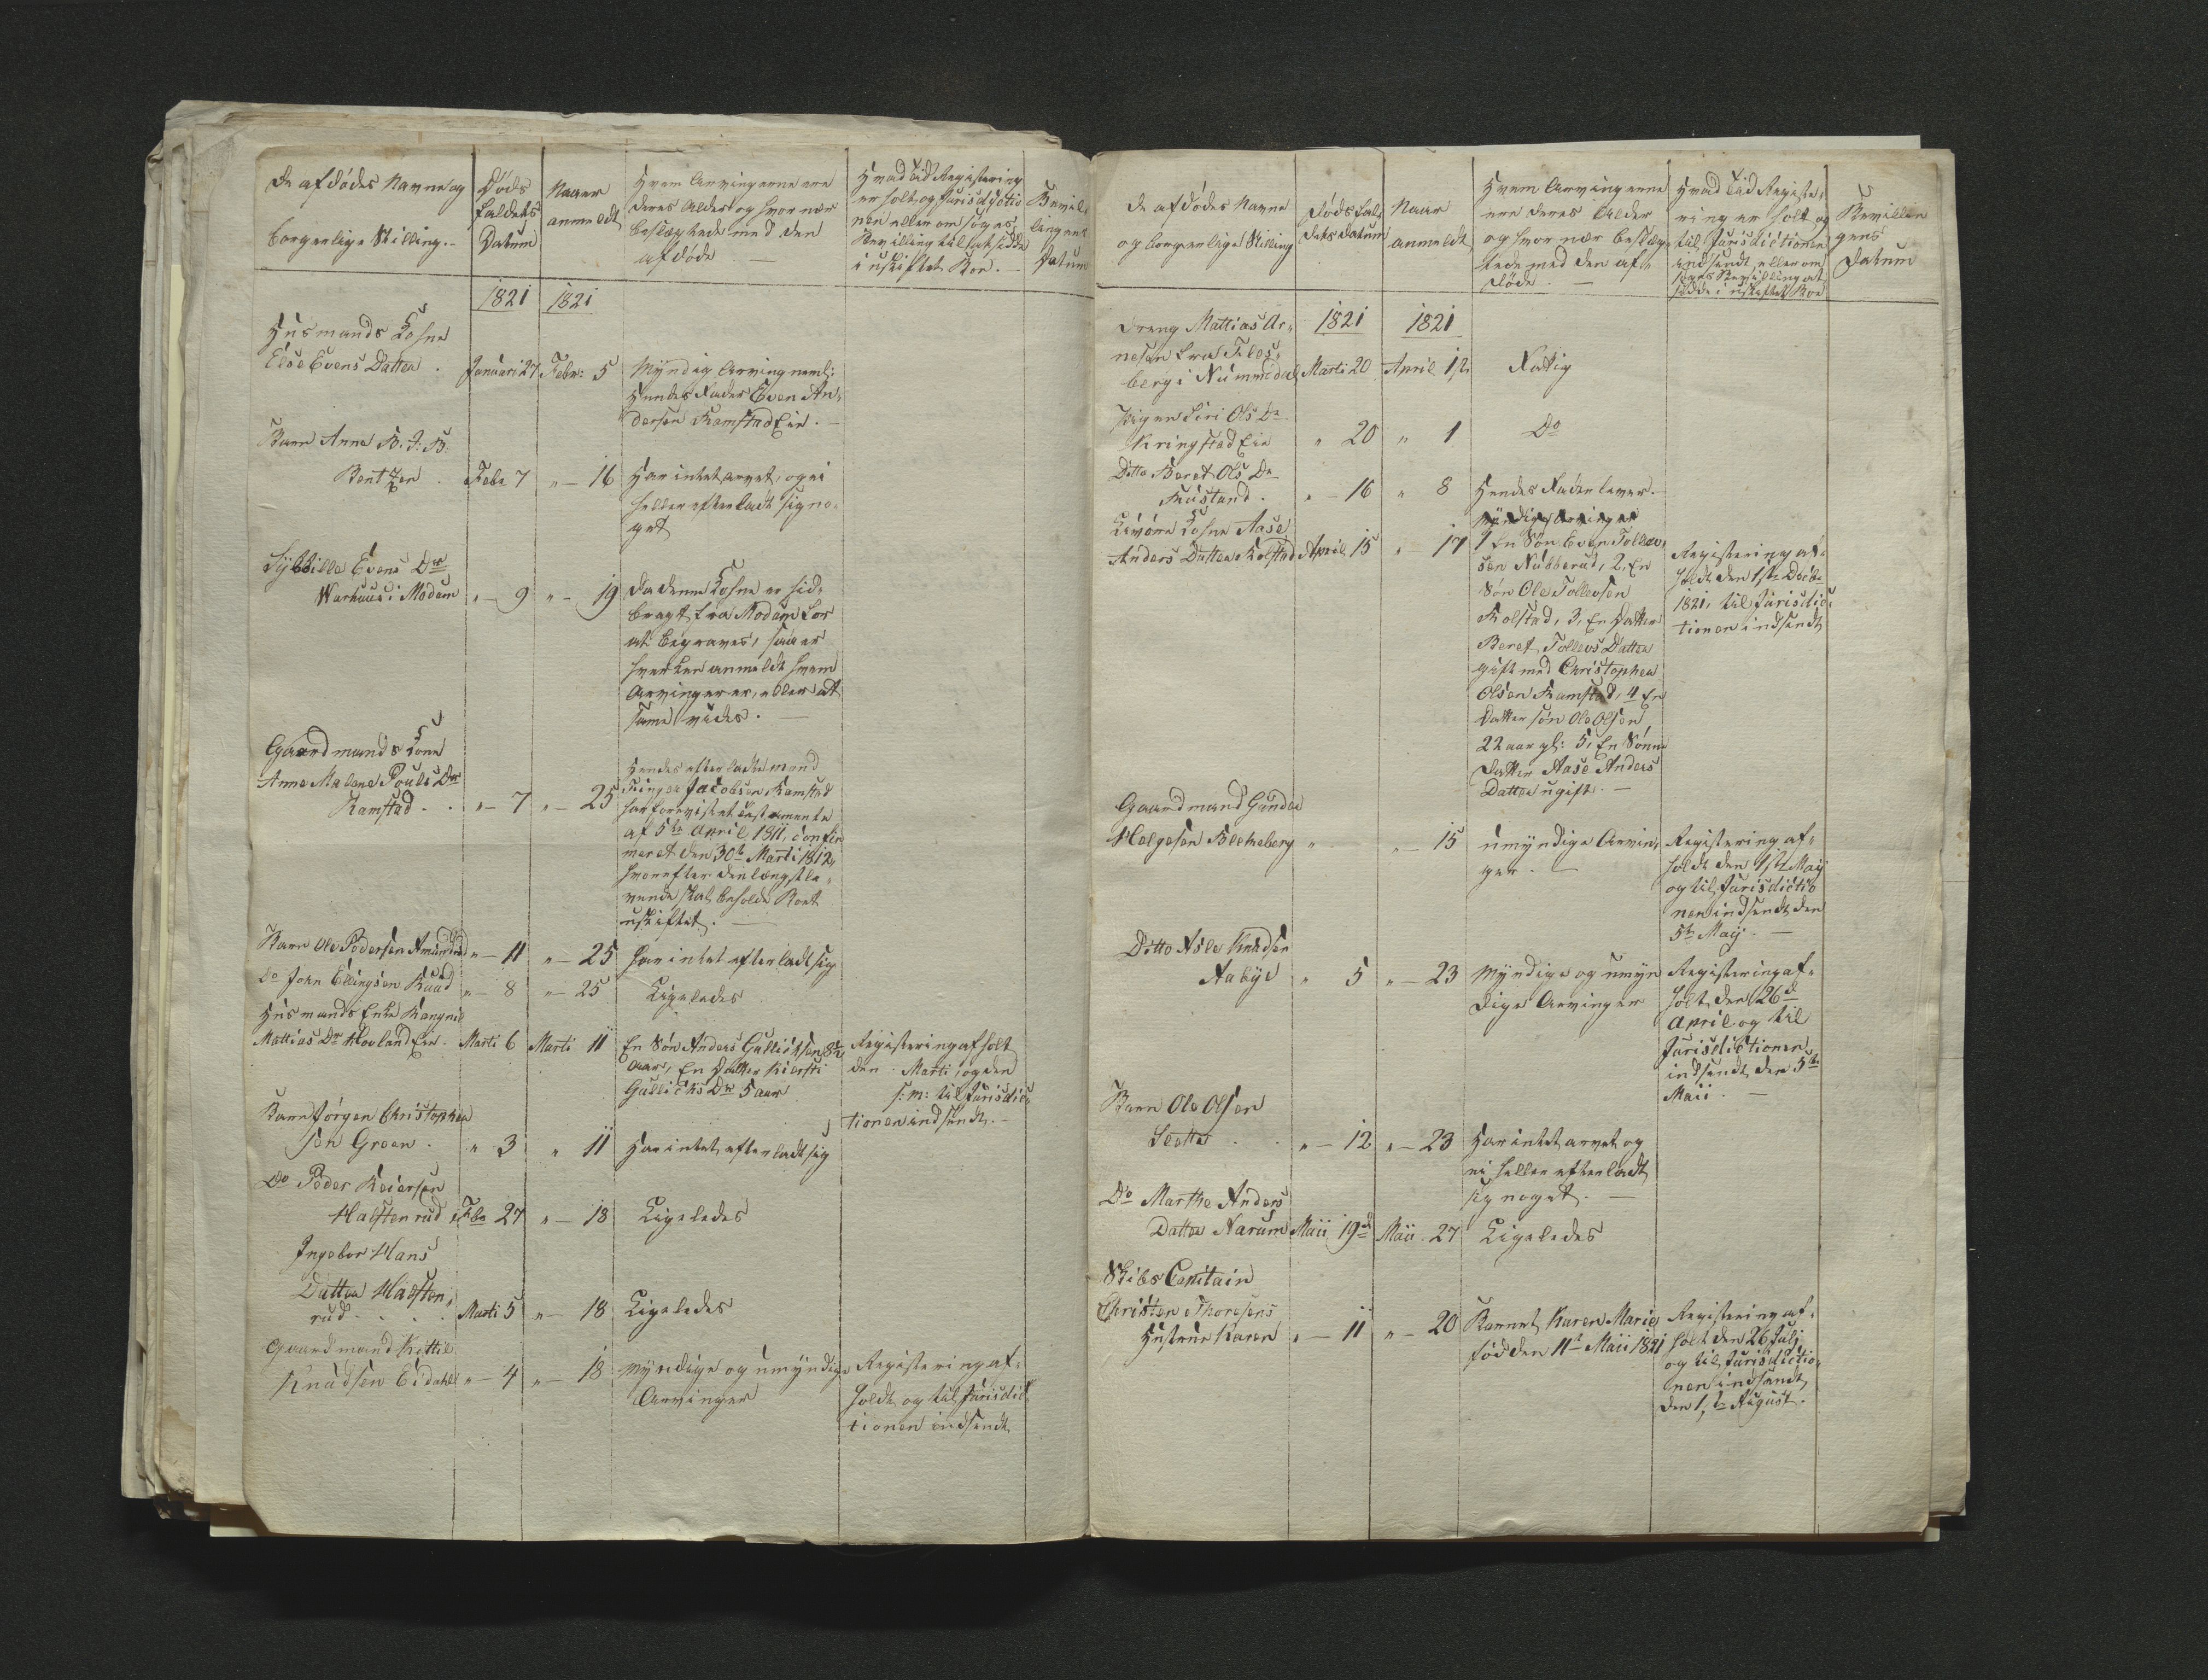 De afdödes Navne og
borgerlige Stilling.
Døds
faldets
Datum
Naar
anmeldt
Hvem Arvingerne ere
deres Alder og hvor nær
beslægtede med den
afdöde
Hvad tid Registering
er holt og Jurisdictio
nen eller om söges
Bevilling til at sidde
i uskiftet Boe.
Bevil-
lingens
Datum
1821 1821
Huusmands Kohne
Else Evens Datter . Januari 27 Febr: 5 Myndig Arving neml:
Hendes Fader Even An-
dersen RamstadEie. -
Barn Anna B. J. B.
Bentzen . Febr 7 " - 16 Har intet arvet, og ei
heller efterladt sig no-
get
Sÿbbille Evens Dr
Warhuus i Modum " - 9 " - 19 Da denne Kohne er hid-
bragt fra Modum for
at begraves, saa er
hverken anmeldt hvem
Arvinger er, eller at
same vides. -
Gaardmands Kone
Anne Malene Pouls Dr
Ramstad . . " - 7 " - 25 Hendes efterladte mand
Jacobsen Ramstad
har forevist et testamente
af 5te April 1811, confir
meret den 30te Marti 1812,
hvorefter den længstle-
vende skal beholde Boet
uskiftet. -
Barn Ole Pedersen Amundrud " - 11 " - 25 har intet efterladt sig
Do John Ellingsen Ruud " - 8 " - 25 Ligeledes
Huusmands Enke Rangnil
Mattias Dr HovlandEie. Marti 6 Marti 11 En Sön Anders Gullichsen 8½
Aar, En Datter Kiersti
Gullichs Dr 5 aar
Registering afholt
den Marti, og den
s: m: til Jurisdic-
tionen indsendt. -
Barn Jörgen Christopher
sen Green . " 3 " 11 Har intet efterladt sig
Do Peder Reiersen
Halstenrud Febr 27 " - 18 Ligeledes
Ingebor Hans
Datter Halsten-
rud . . . Marti 5 " - 18 Ligeledes
Gaardmand Kittil
Knudsen Eidahl " - 4 " - 18 Myndige og umyndige
Arvinger
Registering af-
holdt og til Jurisdic
tionen indsendt
De afdödes Navne
og borgerlige Stilling
Dödsfal-
dets Datum
Naar
anmeldt
Hvem Arvingerne
ere deres Alder
og hvor nær beslæg-
tede med den af-
döde. -
Hvad tid Registe-
ring er holt og
til Jurisdictionen
indsendt, eller om
söges Bevilling at
sidde i uskiftet Boe
Bevillin
gens
Datum
Dreng Mattias Ar- 1821 1821
nesen fra Fles-
berg i Nummedal Marti 20 April 1ste Fattig
Pigen Siri Ols Dr
KringstadEie " 20 " 1 Do
Ditto Beret Ols Dr
Rustand . " - 16 " 8 Hendes Fader lever. -
Livöre Kohne Aase
Anders Datter Kolstad April 15 " - 17 Myndige Arvinger
1 En Sön Even Tollev-
sen Nubberud, 2, En
Sön Ole Tollevsen
Kolstad, 3, En Datter
Beret Tollevs Datter
gift med Christopher
Olsen Ramstad, 4 En
Datter sön Ole Olsen
22 aar gl: 5, En Sönne
Datter Aase Anders
Datter ugift. -
Registering af-
holdt den 1ste Decbr
1821, til Jurisdic-
tionen indsendt
Gaardmand Gunder
Helgesen Blekeberg " " - 15 umyndige Arvin-
ger. -
Registering af-
holdt den 1ste Maÿ
og til Jurisdictio
nen indsendt den
5te Maÿ. -
Ditto Asle Knudsen
Aabÿe " 5 " - 23 Myndige og umyn
dige Arvinger
Registering af-
holt den 26d
April og til
Jurisdictionen
indsendt den 5te
Maii. -
Barn Ole Olsen
Sexxx . . " - 12 " - 23 Har intet arvet og
ei heller efterladt
sig noget. -
Do Marthe Anders
Datter Narum Maii 19de Maii 27 Ligeledes
Skibs Capitain
Christen Thoresens
Hustrue Karen " - 11 " - 20 Barnet Karen Marie
föd den 11te Maii 1821
Registering af-
holt den 26 Julj
og til Jurisdictio-
nen indsendt
den 1ste August.